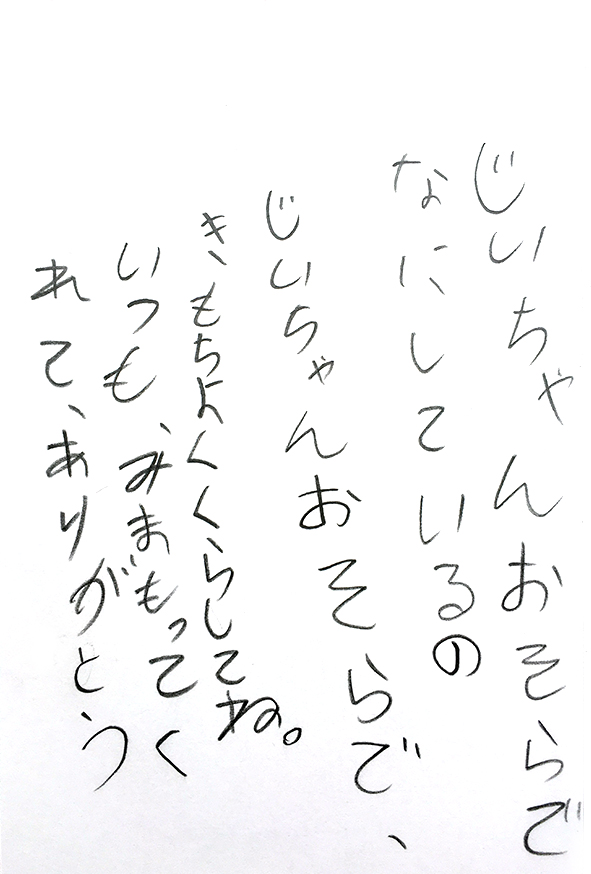 じいちゃんおそらで
なにしているの
じいちゃんおそらで、
きもちよくくらしてね。
いつも、みまもってく
れて、ありがとう